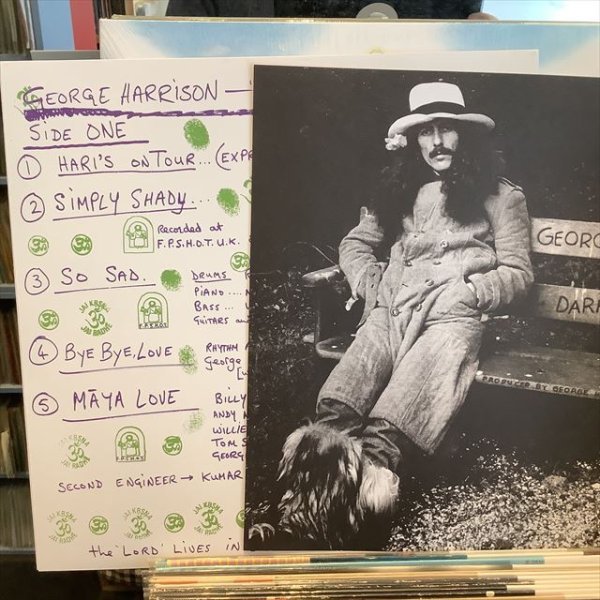 GEORGE HARRISON —
SIDE ONE
① HARI'S ON TOUR... (EXP
② SIMPLY SHADY...
Recorded at
F.P.S.H.O.T. U.K.
③ SO SAD.
DRUMS
PIANO ...
BASS ...
GUITARS
④ BYE BYE, LOVE
RHYTHM
George
⑤ MĀYA LOVE
BILLY
ANDY
WILLIE
TOM S
GEORG
SECOND ENGINEER → KUMAR
the 'LORD' LIVES IN
JAI KRSNA
ॐ
JAI RADHE
F.P.S.H.O.T.
GEORG
DAR
PRODUCED BY GEORGE H